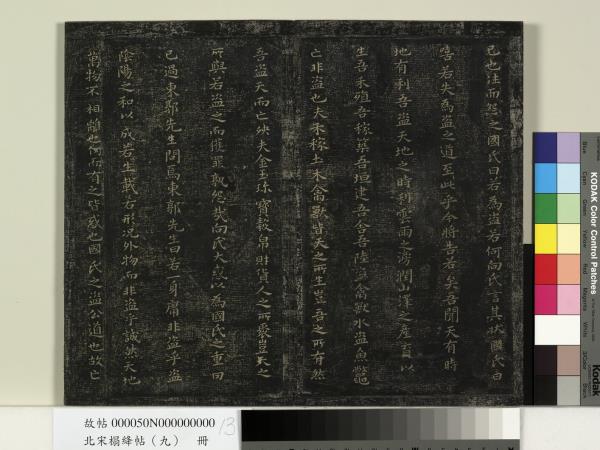 己也往而怨之國氏曰若為盜若何向氏言其狀國氏曰
嘻若失為盜之道至此乎今將告若矣吾聞天有時
地有利吾盜天地之時利雲雨之滂潤山澤之產育以
生吾禾殖吾稼築吾垣建吾舍吾陸盜禽獸水盜魚鱉
亡非盜也夫禾稼土木禽獸皆天之所生豈吾之所有然
吾盜天而亡殃夫金玉珎寶穀帛財貨人之所聚豈天之
所與若盜之而獲罪孰怨哉向氏大惑以為國氏之重罔
己過東郭先生問焉東郭先生曰若一身庸非盜乎盜
陰陽之和以成若生載若形況外物而非盜乎誠然天地
萬物不相離也仞而有之皆惑也國氏之盜公道也故亡
故帖 000050N000000000
北宋榻絳帖（九） 冊
13
KODAK Color Control Patches
Kodak
Blue
Cyan
Green
Yellow
Red
Magenta
White
3/Color
Black